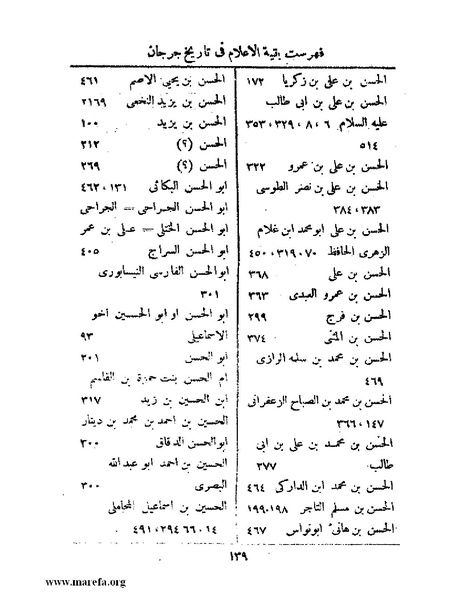 فهرست بقية الاعلام فى تاريخ جرجان
الحسن بن على بن زكريا ١٧٢
الحسن بن على بن ابى طالب
عليه السلام ٦ ، ٨ ، ٣٢٩ ، ٣٥٣ ،
٥١٤
الحسن بن على بن عمرو ٣٢٢
الحسن بن على بن نصر الطوسى
٣٨٣ ، ٣٨٤
الحسن بن على ابو محمد ابن غلام
الزهرى الحافظ ٧٠ ، ٣١٩ ، ٤٥٠
الحسن بن على ٣٦٨
الحسن بن عمرو العبدى ٣٦٣
الحسن بن فرج ٢٩٩
الحسن بن المثنى ٣٧٤
الحسن بن محمد بن سلمه الرازى
٤٦٩
الحسن بن محمد بن الصباح الزعفرانى
١٤٧ ، ٣٦٦
الحسن بن محمد بن على بن ابى
طالب ٣٧٧
الحسن بن محمد ابن الداركى ٤٦٤
الحسن بن مسلم التاجر ١٩٨ ، ١٩٩
الحسن بن هانئ ابونواس ٤٦٧
الحسن بن يحيى الاصم ٤٦١
الحسن بن يزيد النخعى ٢١٦٩
الحسن بن يزيد ١٠٠
الحسن (؟) ٣١٢
الحسن (؟) ٢٦٩
ابو الحسن البكائى ١٣١ ، ٤٦٢
ابو الحسن الجراحى = الجراحى
ابو الحسن الختلى = على بن عمر
ابو الحسن السراج ٤٠٥
ابوالحسن الفارسى النيسابورى
٣٠١
ابو الحسن او ابو الحسين اخو
الاسماعيلى ٩٣
ابو الحسن ٣٠١
ام الحسن بنت حمزة بن القاسم
ابن الحسين بن زيد ٣١٧
الحسين بن احمد بن محمد بن دينار
ابوالحسن الدقاق ٣٠٠
الحسين بن احمد ابو عبد الله
البصرى ٣٠٠
الحسين بن اسماعيل المحاملى
١٤ ، ٦٦ ، ٢٩٤ ، ٤٩١
١٣٩
www.marefa.org